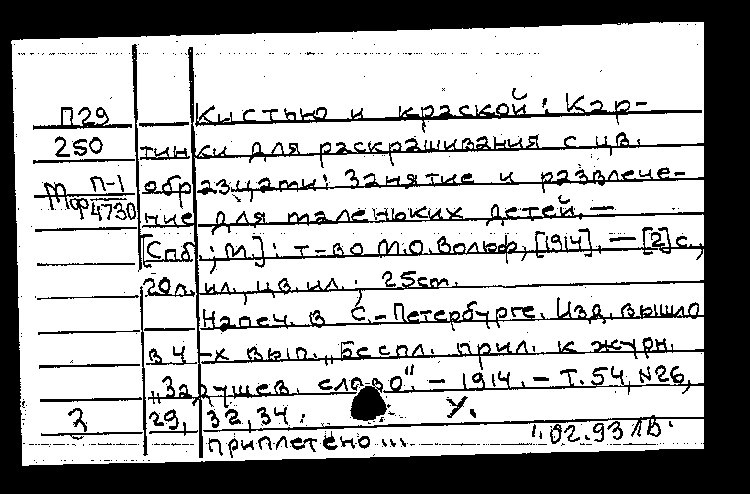 П29 Кистью и краской: Кар-
250 тинки для раскрашивания с цв.
Мфр П-1/4730 образцами: Занятие и развлече-
ние для маленьких детей. —
[Спб.; М.]: т-во М.О. Вольф, [1914]. — [2] с.,
20 л. ил., цв. ил.; 25 cm.
Напеч. в С.-Петербурге. Изд. вышло
в 4-х вып. „Беспл. прил. к журн.
„Задушев. слово“. — 1914. — Т. 54, №26,
29, 32, 34. У.
приплетено...
02.93 ЛВ.